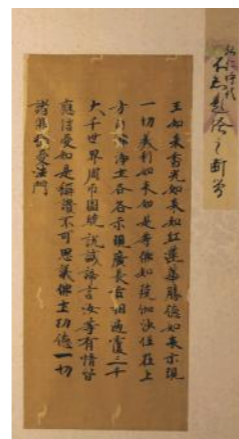 王如来香光如来如紅蓮華勝徳如来示現
一切義利如来如是等佛如殑伽沙住在上
方自佛浄土各各示現廣長舌相遍覆三千
大千世界周帀圍繞説誠諦言汝等有情皆
應信受如是稱讃不可思議佛土功徳一切
諸佛攝受法門